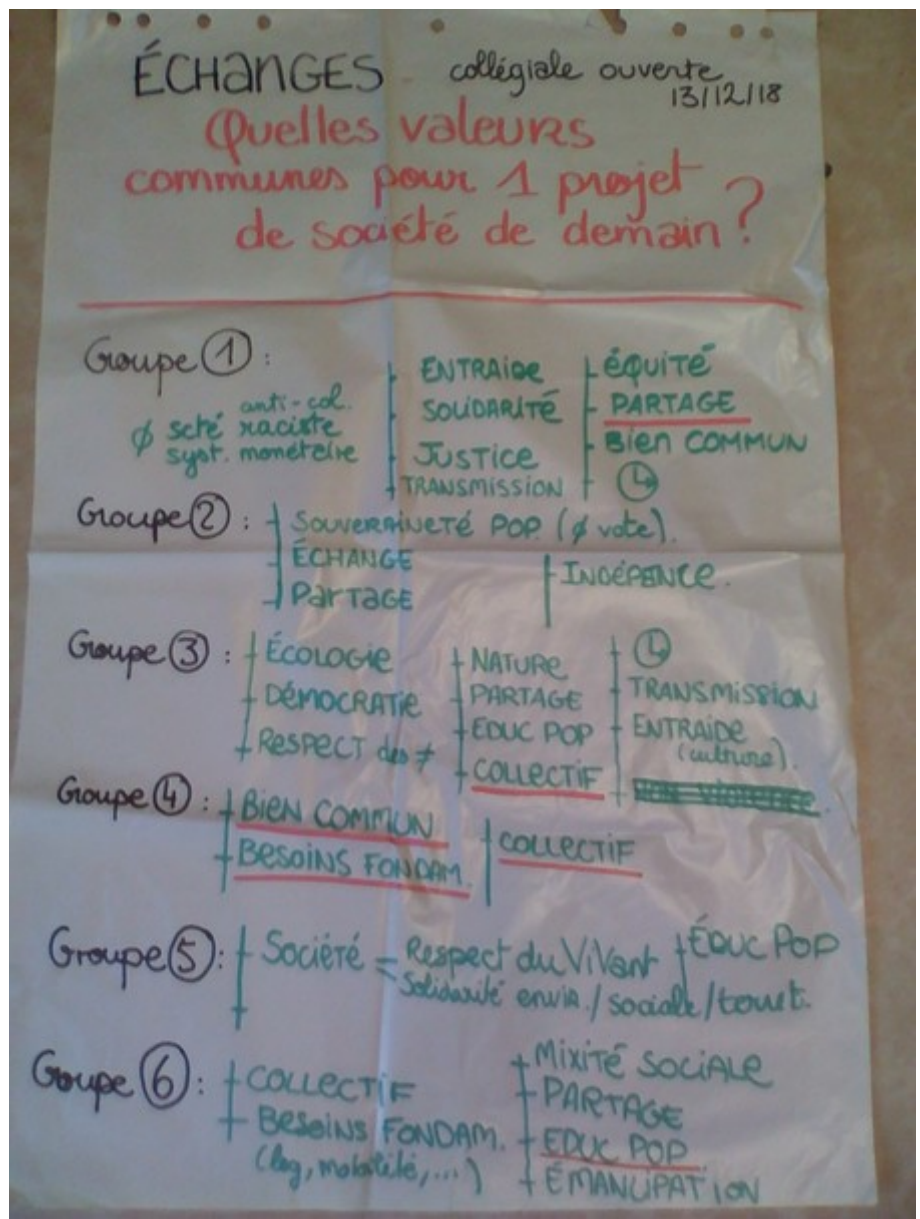 ÉCHANGES collégiale ouverte
13/12/18
Quelles valeurs
communes pour 1 projet
de société de demain ?
Groupe 1 :
anti-col.
∅ scté raciste
syst. monétaire
ENTRAIDE
SOLIDARITÉ
JUSTICE
TRANSMISSION
ÉQUITÉ
PARTAGE
BIEN COMMUN
Groupe 2 :
SOUVERAINETÉ POP. (∅ vote).
ÉCHANGE
PARTAGE
INDÉPENCE.
Groupe 3 :
ÉCOLOGIE
DÉMOCRATIE
RESPECT des ≠
NATURE
PARTAGE
EDUC POP
COLLECTIF
TRANSMISSION
ENTRAIDE
(culture).
Groupe 4 :
BIEN COMMUN
BESOINS FONDAM.
COLLECTIF
Groupe 5 :
Société = Respect du Vivant
Solidarité envir. / sociale / territ.
ÉDUC POP
Groupe 6 :
COLLECTIF
BESOINS FONDAM.
(log, mobilité, ...)
MIXITÉ SOCIALE
PARTAGE
EDUC POP
ÉMANCIPATION